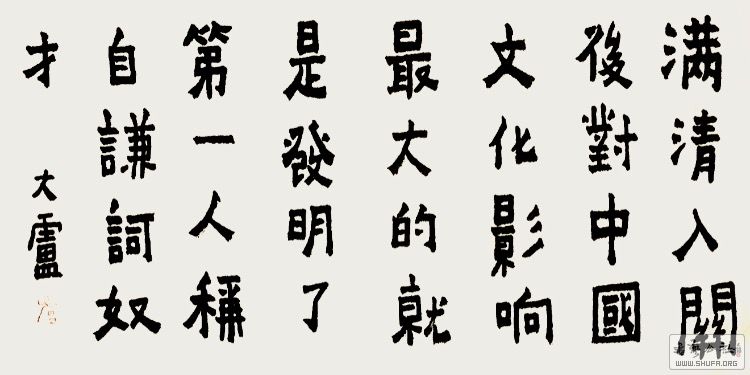 满清入關
後對中國
文化影响
最大的就
是發明了
第一人稱
自謙詞奴
才
大盧
WWW.SHUFA.ORG